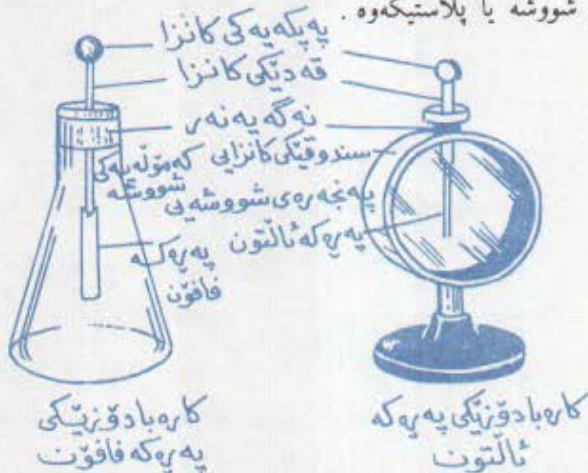 شووشه یا پلاستیکەوە .
پەپکەیەکی کانزا
قەدێکی کانزا
نەگەیەنەر
سندوقێکی کانزایی
کەمۆڵەیەکی شووشە
پەنجەرەی شووشەیی
پەڕەکە ئاڵتون
پەڕەکە
فافۆن
کارەبادۆزێکی پەڕەکە
ئاڵتون
کارەبادۆزێکی
پەڕەکە فافۆن